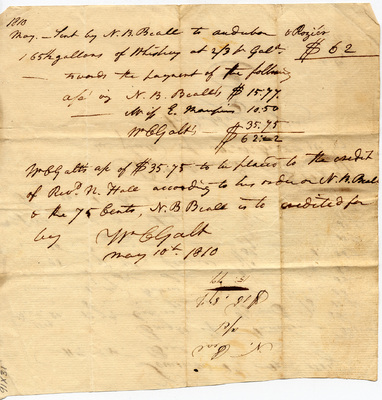 1810
May. – Sent by N. B. Beall to audubon & Rozier
165½ gallons of Whiskey at 2/3 pr Galln $62
– towards the payment of the following
a/cs viz N. B. Bealls $15.77
E. 10.50
Wm C Galts $35.75
$62..2
Wm C Galts a/c of $35.75 to be placed to the credit
of Revd. N. Hall according to his order on N. B. Beall
& the 75 Cents, N. B Beall is to credited for
by Wm C Galt
may 10th. 1810
N. Beall
a/cs
1816